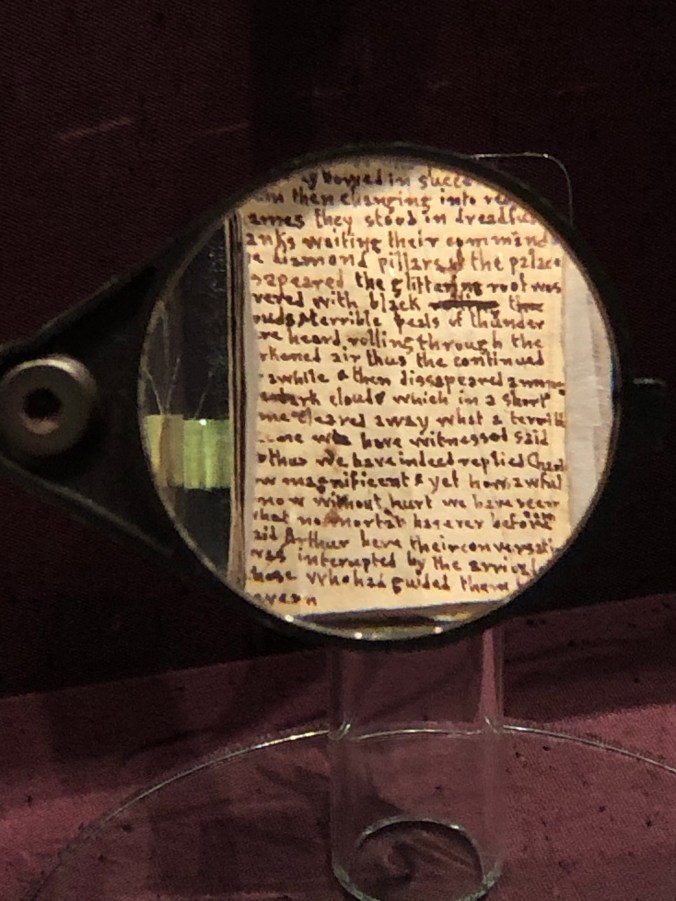 bowed in succe
then changing into re
ames they stood in dreadful
anks waiting their command
e diamond pillars of the palace
sapeared the glittering roof was
vered with black the
ouds terrible peals of thunder
re heard rolling through the
rkened air thus the continued
awhile & then dissapeared
dark clouds which in a short
me cleared away what a terrible
cene we have witnessed said
thus we have indeed replied Charl
w magnificent & yet how awful
now without hurt we have seen
what no mortal has ever before
aid Arthur here their conversati
was interupted by the arrival
hose who had guided them
avern